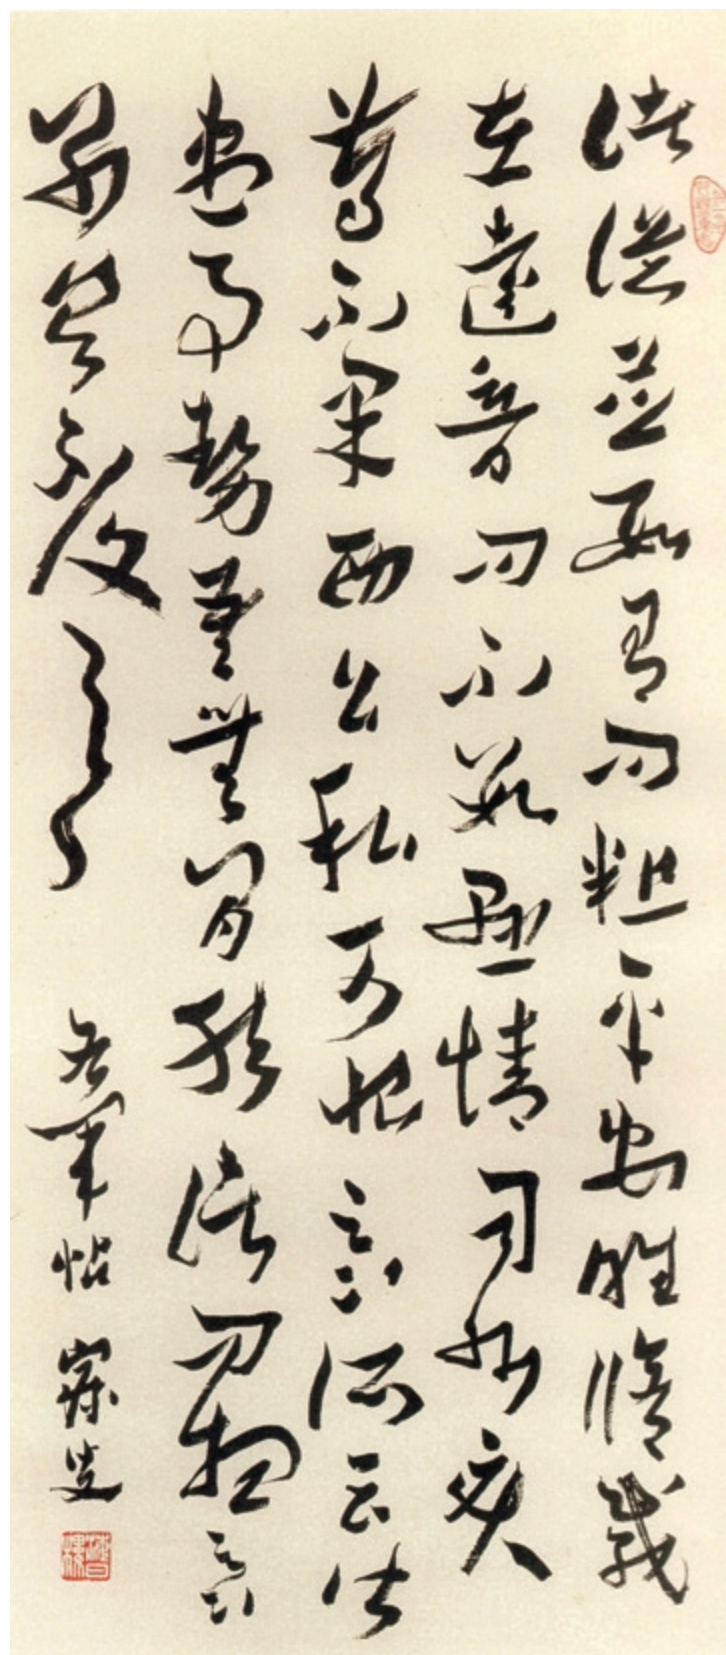 諸從並數有問粗平安唯脩載
在遠音問不數懸情司州疾
篤不果西公私可恨足下所云皆
盡事勢吾無間然諸問想足下
別具不復一一
右軍帖 寐叟